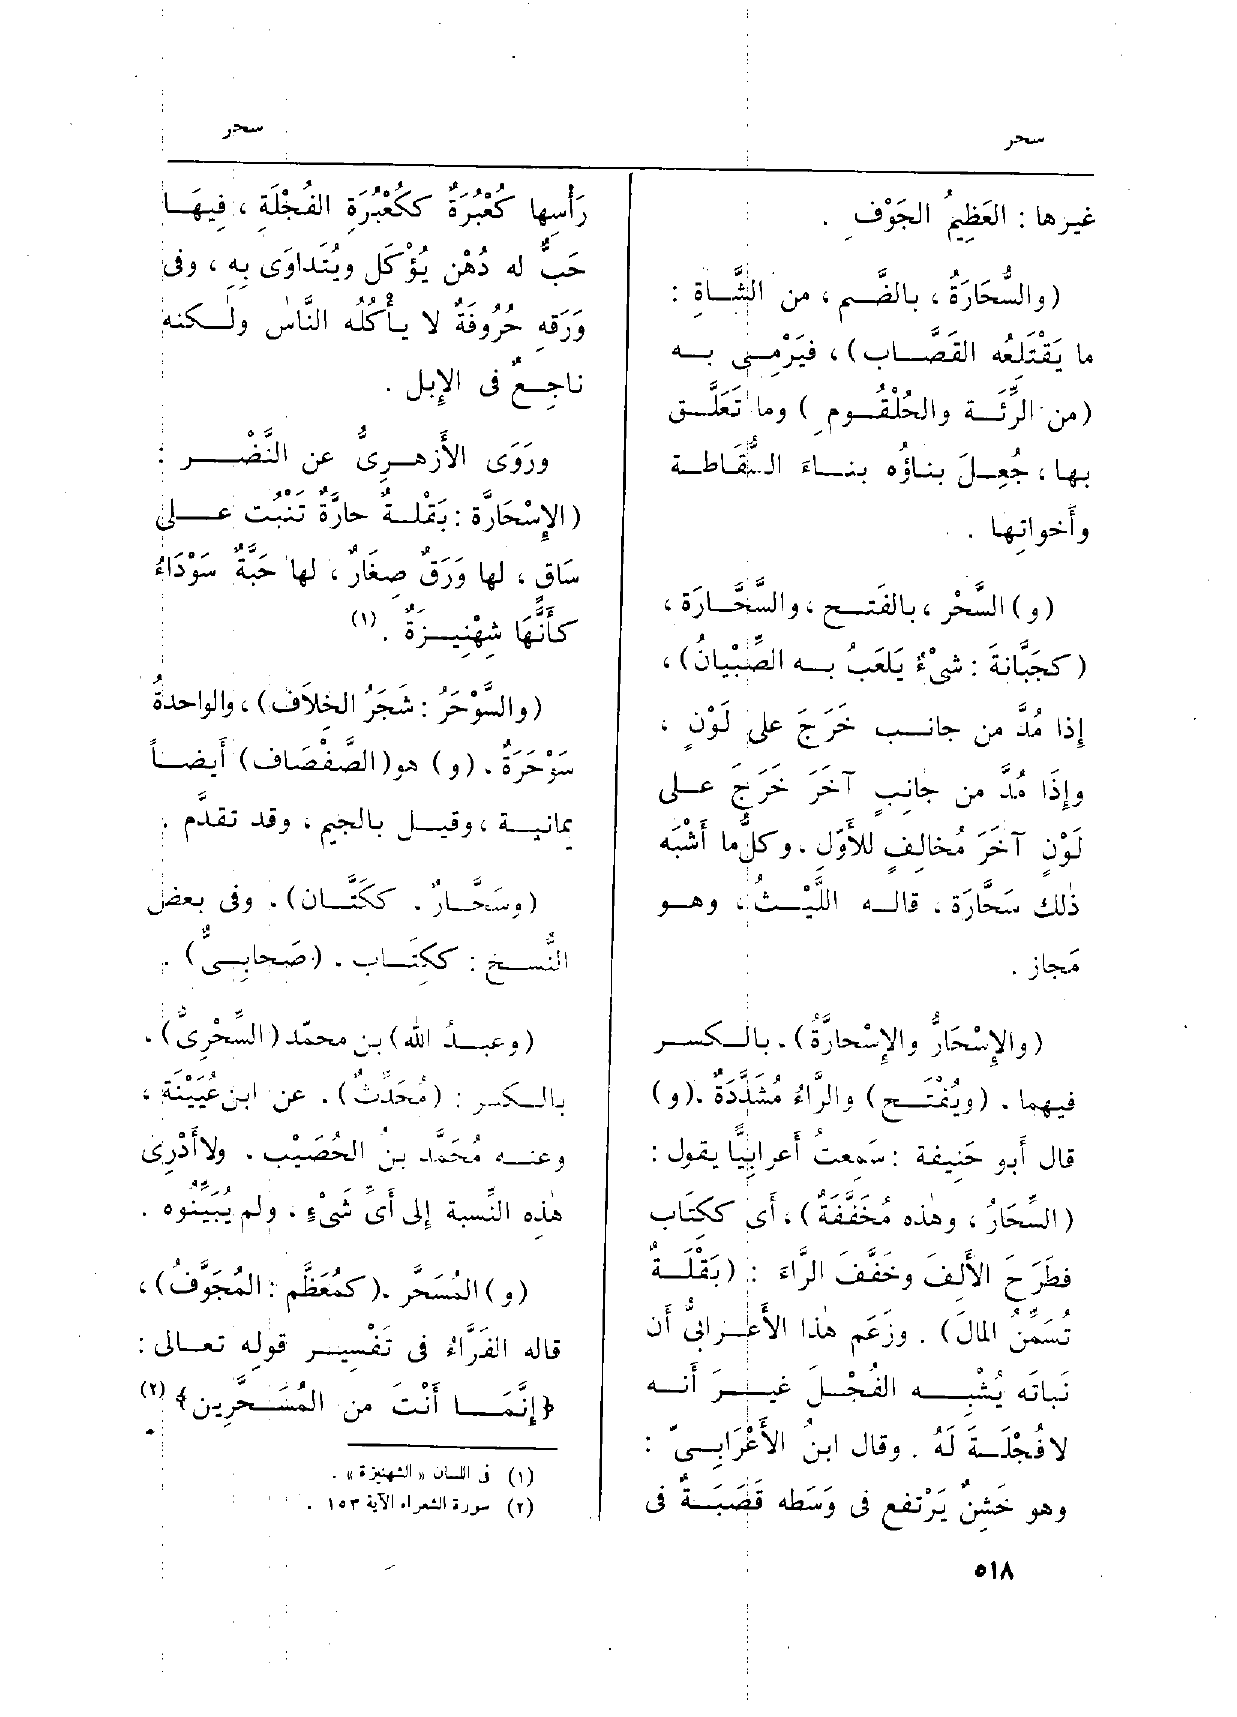 سحر
سحر
غيرها : العَظِيمُ الجَوْفِ .
(والسُّحَارَةُ ، بالضَّم ، من الشَّاةِ :
ما يَقْتَلعُه القَصَّاب) ، فيَرْمِى به
(من الرِّئَة والحُلْقُوم ِ) وما تَعَلَّق
بها ، جُعِلَ بناؤُه بناءَ النُّقَاطة
وأَخواتِها .
(و) السَّحْر ، بالفَتح ، والسَّحَّارَة ،
(كجَبَّانَة : شىْءٌ يَلعَبُ به الصِّبْيانُ) ،
إذا مُدَّ من جانب خَرَجَ على لَوْنٍ ،
وإِذَا مُدَّ من جانِبٍ آخَرَ خَرَجَ على
لَوْنٍ آخَرَ مُخالِفٍ للأَوّلِ . وكلُّ ما أَشْبَه
ذٰلك سَحَّارَة . قاله اللَّيْثُ ، وهو
مَجاز .
(والإِسْحَارُّ والإِسْحارَّةُ) . بالكسر
فيهما . (ويُفْتَح) والرَّاءُ مُشَدَّدَةٌ .(و)
قال أَبو حَنِيفة : سَمِعتُ أَعرابيًّا يقول :
(السِّحَارُ ، وهٰذه مُخَفَّفَةٌ) ، أَى ككِتَاب
فطَرَحَ الأَلِفَ وخَفَّفَ الرَّاءَ : (بَقْلَةٌ
تُسَمِّنُ المالَ) . وزَعَم هٰذا الأَعرابىُّ أَن
نَباتَه يُشْبِه الفُجْلَ غيرَ أَنه
لا فُجْلَةَ لَهُ . وقال ابنُ الأَعْرَابِىّ :
وهو خَشِنٌ يَرْتفع فى وَسَطه قَصَبَةٌ فى
رَأْسها كُعْبُرَةٌ ككُعْبُرَة الفُجْلَةِ ، فِيهَا
حَبٌّ له دُهْن يُؤْكَل ويُتداوَى بِهِ ، وفى
وَرَقِه حُرُوفَةٌ لا يأْكُلُه النَّاس ولٰكنه
ناجِعٌ فى الإِبِل .
ورَوَى الأَزهرِىُّ عن النَّضْر :
(الإِسْحَارَّة : بَقْلةٌ حارَّةٌ تَنْبُت على
سَاق ، لها وَرَقٌ صِغَارٌ ، لها حَبَّةٌ سَوْدَاءُ
كأَنَّهَا شِهْنِيزَةٌ .(١)
(والسَّوْحَرُ : شَجَرُ الخِلاَف) ، والواحدةُ
سَوْحَرَةٌ . (و) هو(الصَّفْصَاف) أَيضاً
يمانية ، وقيل بالجيم ، وقد تقدَّم .
(وسَحَّارٌ . ككَتَّان) . وفى بعض
النُّسخ : ككِتَاب . (صَحابىٌّ) .
(وعبدُ الله) بن محمّد (السِّحْرِىُّ) .
بالكسر : (مُحَدِّثٌ) . عن ابن عُيَيْنَة ،
وعنه مُحَمَّد بنُ الحُصَيْب . ولا أَدْرِى
هٰذه النِّسبة إِلى أَىِّ شَىْءٍ . ولم يُبَيِّنُوه .
(و) المُسَحَّر .(كمُعَظَّم : المُجَوَّفُ) ،
قاله الفَرَّاءُ فى تَفْسِير قوله تعالى :
﴿إِنَّمَا أَنْتَ من المُسَحَّرِين﴾ (٢)
(١) فى اللسان « الشهنيزة » .
(٢) سورة الشعراء الآية ١٥٣ .
٥١٨